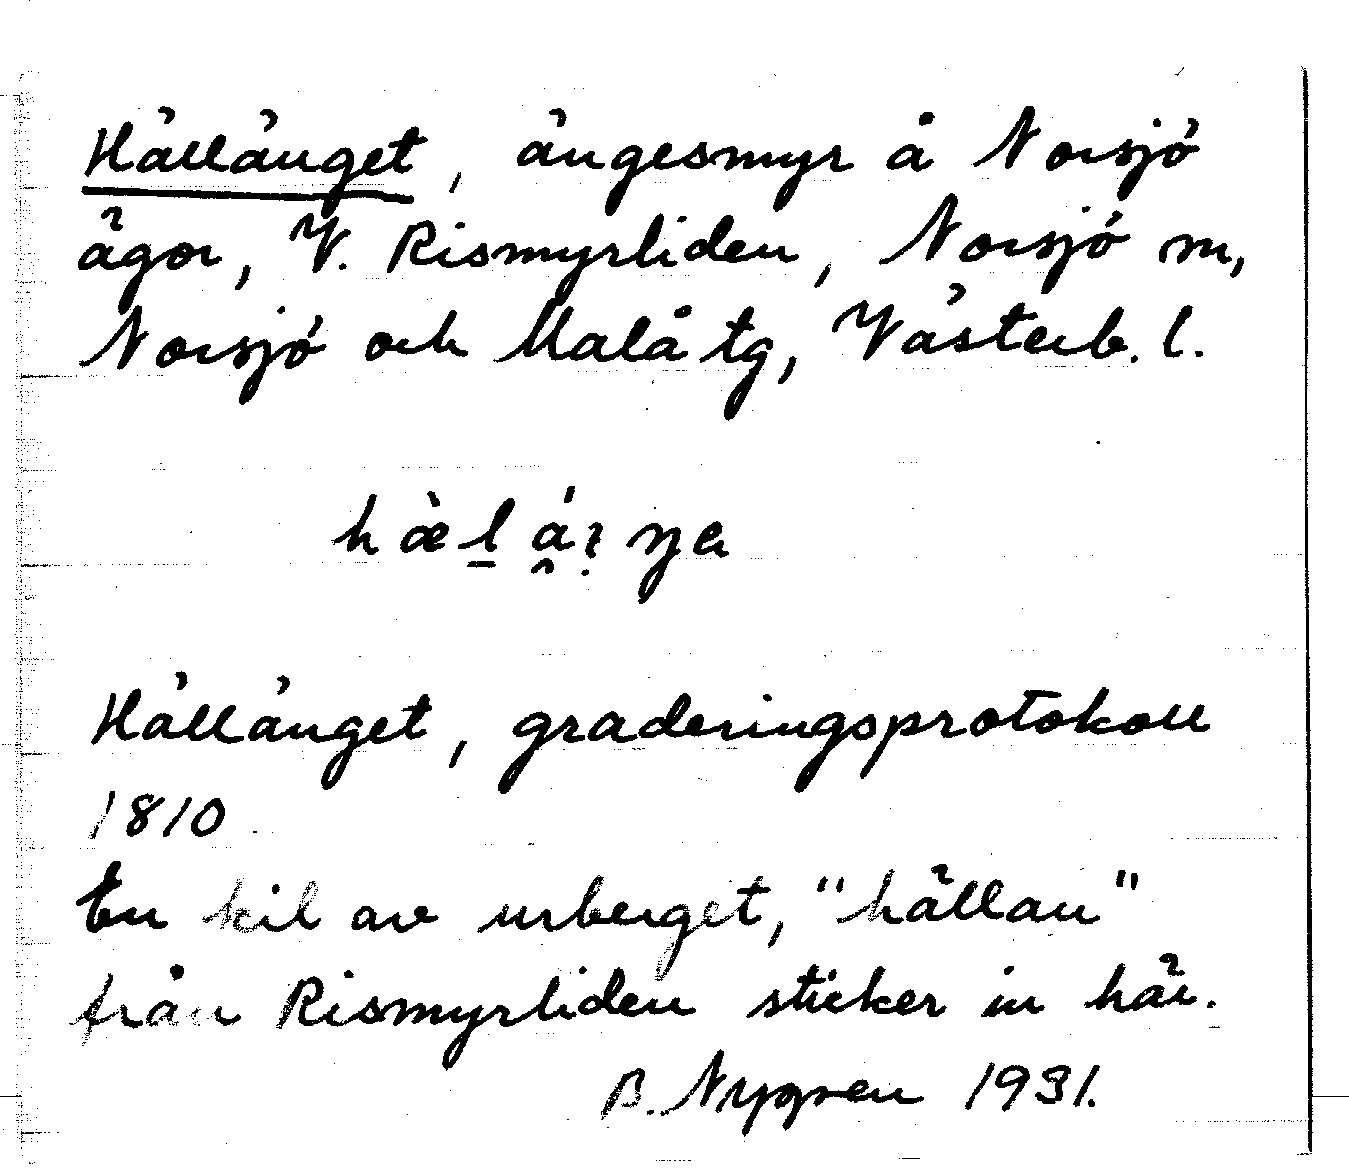 Hällänget, ängesmyr å Norsjö
ägor, V. Rismyrliden, Norsjö m,
Norsjö och Malå tg, Västerb. l.
Hällänget, graderingsprotokoll
1810
En kil av urberget, "hällan"
från Rismyrliden sticker in här.
B. Nygren 1931.